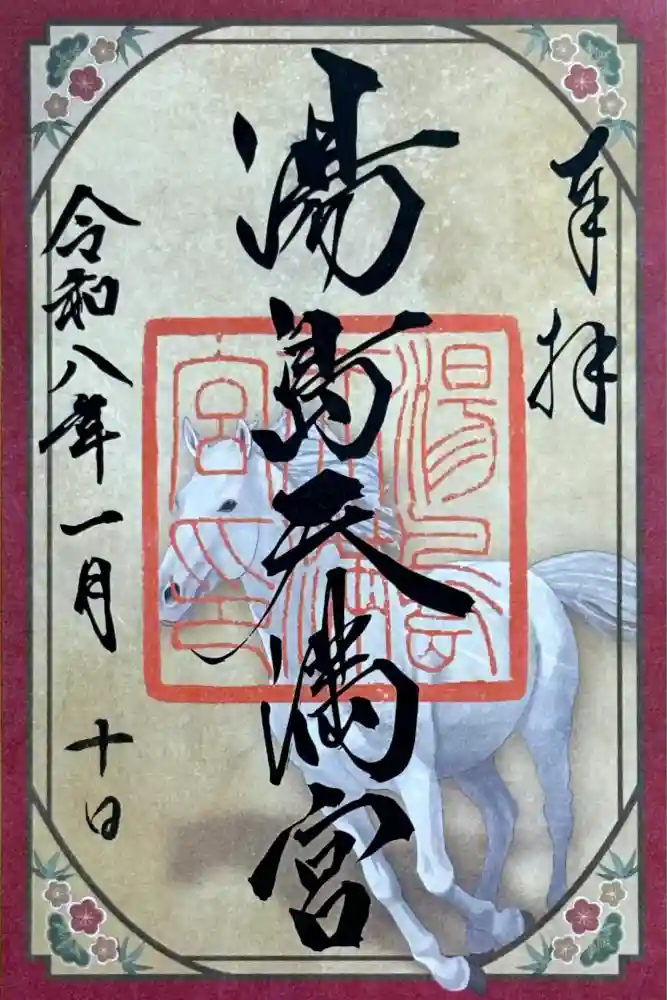 奉拝
湯島天満宮
湯島天満宮之印
令和八年一月十日